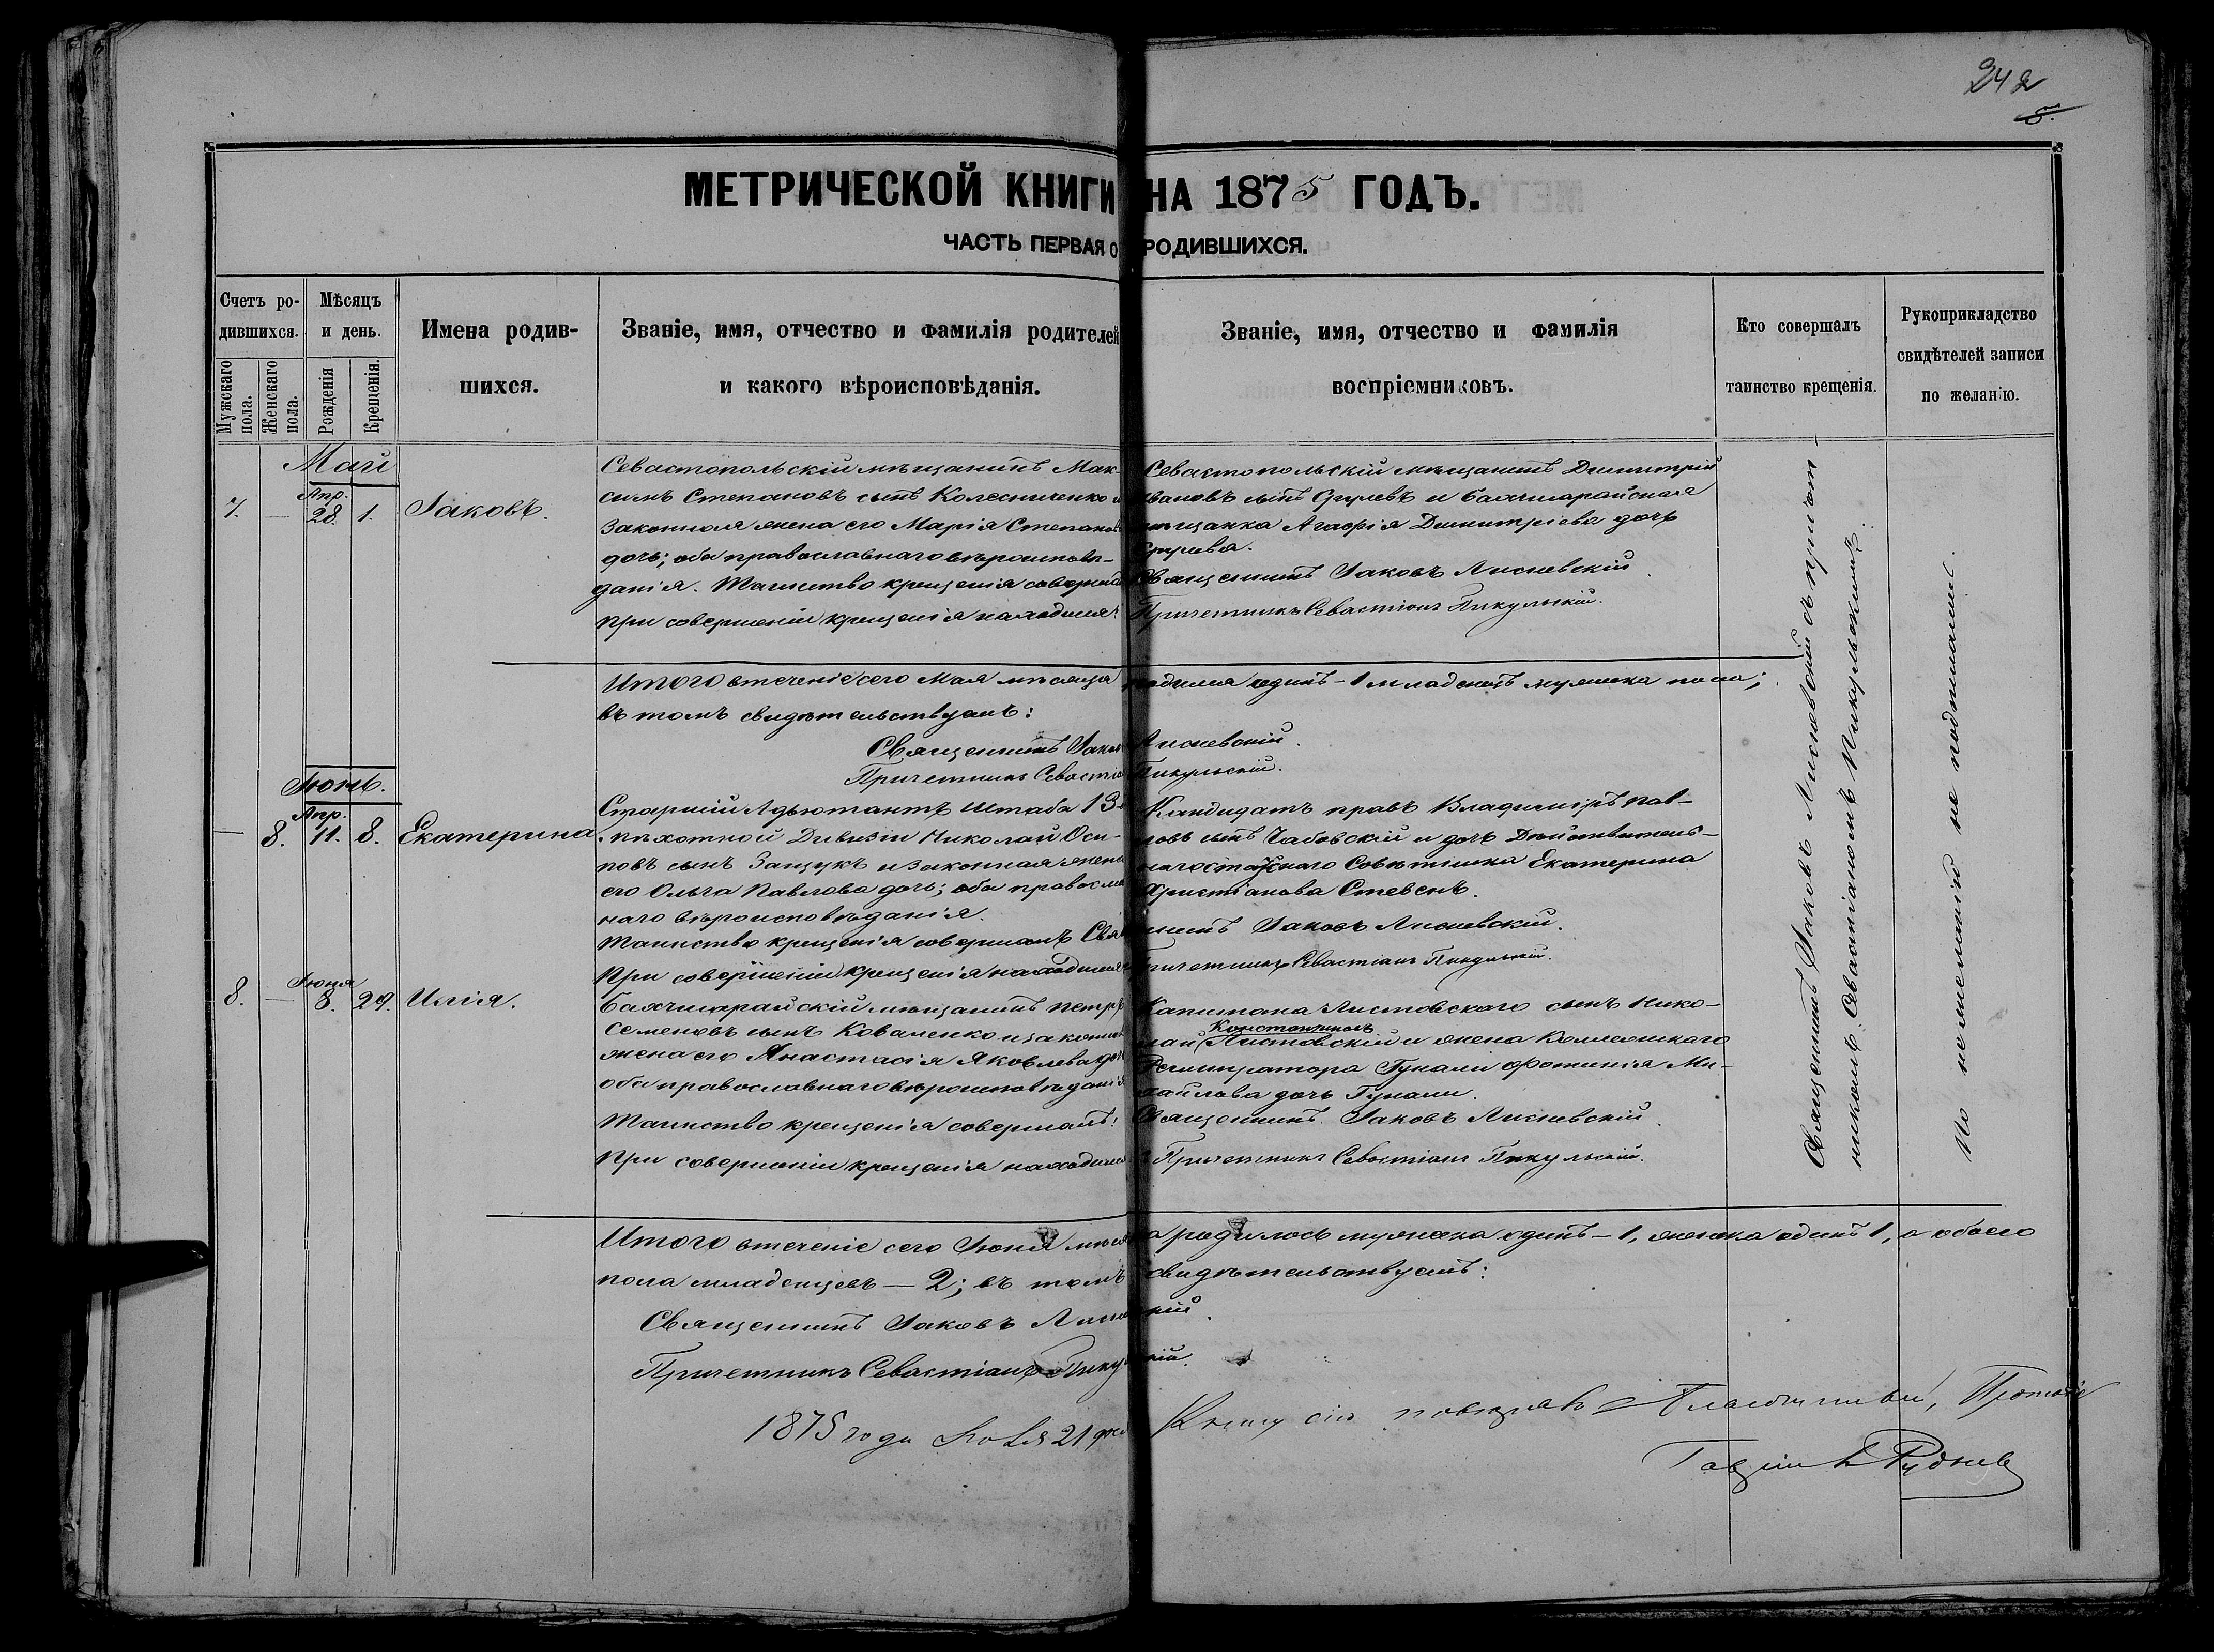 242
8.
МЕТРИЧЕСКОЙ КНИГИ НА 1875 ГОДЪ.
ЧАСТЬ ПЕРВАЯ О РОДИВШИХСЯ.
Счетъ ро-
дившихся.
Мужскаго пола.
Женскаго пола.
Мѣсяцъ
и день.
Рожденія
Крещенія.
Имена родив-
шихся.
Званіе, имя, отчество и фамилія родителей
и какого вѣроисповѣданія.
Званіе, имя, отчество и фамилія
воспріемниковъ.
Кто совершалъ
таинство крещенія.
Рукоприкладство
свидѣтелей записи
по желанію.
Май
7. — Апр. 28. 1. Іаковъ.
Севастопольскій мѣщанинъ Мак-
симъ Степановъ сынъ Колесниченко и
законная жена его Марія Степанов
дочь; оба православнаго вѣроисповѣ-
данія. Таинство крещенія соверш
при совершеніи крещенія находился:
Севастопольскій мѣщанинъ Димитрій
Ивановъ сынъ и Бахчисарайская
мѣщанка Агафія Димитріева дочь
Священникъ Іаковъ Лисневскій.
Причетникъ Севастіанъ Пикульскій.
Итого втеченіе сего Мая мѣсяца родился одинъ - 1 младенецъ мужеска пола;
въ томъ свидѣтельствуемъ:
Священникъ Іаковъ Лисневскій.
Причетникъ Севастіанъ Пикульскій.
Іюнь.
— 8. Апр. 11. 8. Екатерина.
Старшій Адъютантъ Штаба 13-й
пѣхотной Дивизіи Николай Оси-
повъ сынъ Защукъ и законная жена
его Ольга Павлова дочь; оба правосла
наго вѣроисповѣданія.
Таинство крещенія совершалъ Свя
При совершеніи крещенія находился
Кандидатъ правъ Владиміръ Пав-
ловъ сынъ Чабовскій и дочь Дѣйствитель-
наго Статскаго Совѣтника Екатерина
Христіанова Стевенъ.
никъ Іаковъ Лисневскій.
Причетникъ Севастіанъ Пикульскій.
8. — Іюня 8. 29. Илія.
Бахчисарайскій мѣщанинъ Петръ
Семеновъ сынъ Коваленко и законная
жена его Анастасія Яковлева дочь
оба православнаго вѣроисповѣданія
Таинство крещенія совершалъ:
При совершеніи крещенія находился
Капитана Листовскаго сынъ Нико-
Константинъ
лай Листовскій и жена Коллежскаго
Регистратора Гунали Фотинія Ми-
хайлова дочь Гунали.
Священникъ Іаковъ Лисневскій.
Причетникъ Севастіанъ Пикульскій.
Священникъ Іаковъ Лисневскій съ причет-
никомъ Севастіаномъ Пикульскимъ.
По неженію не подписались.
Итого втеченіе сего Іюня мѣсяца родилось мужеска одинъ - 1, женска одинъ 1, а обоего
пола младенцевъ — 2; въ томъ свидѣтельствуемъ:
Священникъ Іаковъ Лисневскій.
Причетникъ Севастіанъ Пикульскій.
1875 года 21 дня Книгу сію повѣрялъ Благочинный,
Гавріилъ Рудневъ